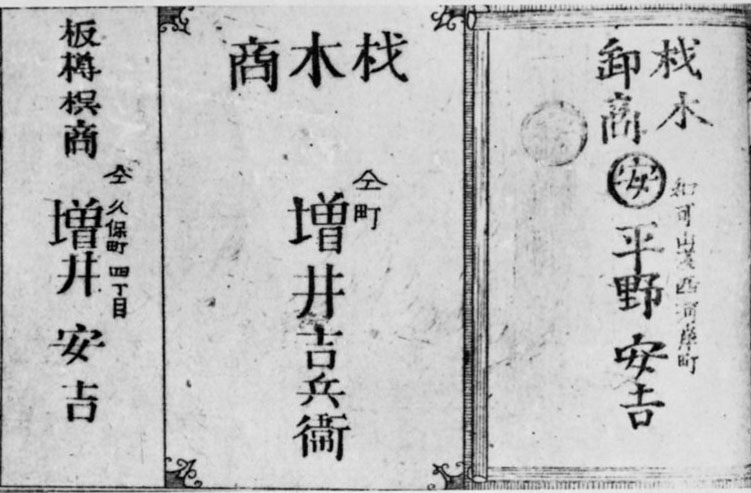 材木
卸商
安
西河岸町
平野安吉
材木商
仝町
増井吉兵衞
板樽商
仝久保町四丁目
増井安吉